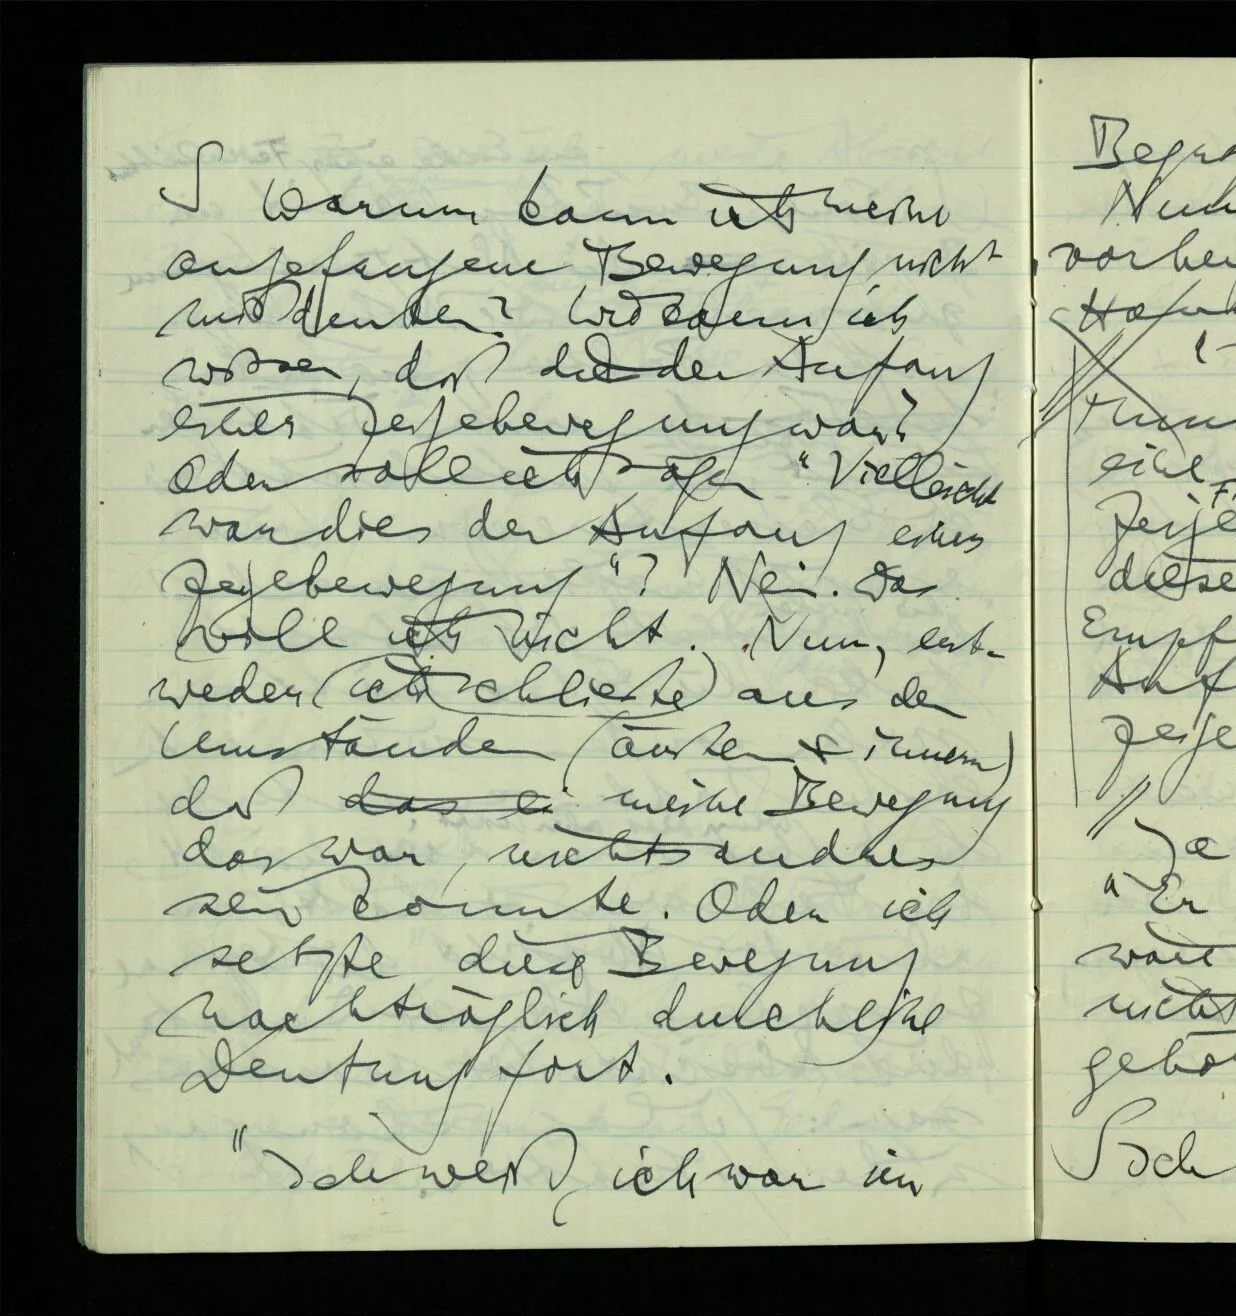 ∫ Warum kann ich meine
angefangene Bewegung nicht
mißdeuten? Wie kann ich
wissen, daß die der Anfang
einer Zeigebewegung war?
Oder soll ich sagen "Vielleicht
war dies der Anfang einer
Zeigebewegung"? Nein. Das
will ich nicht. Nun, ent-
weder (ich schließe) aus den
Umständen (äußern & innern)
daß das ei meine Bewegung
das war, nichts andres
sein konnte. Oder ich
setzte diese Bewegung
nachträglich durch eine
Deutung fort.
"Ich weiß, ich war im
eine
Zeige
diese
Empf
Anf
Zeige
"Er
nicht
Ich